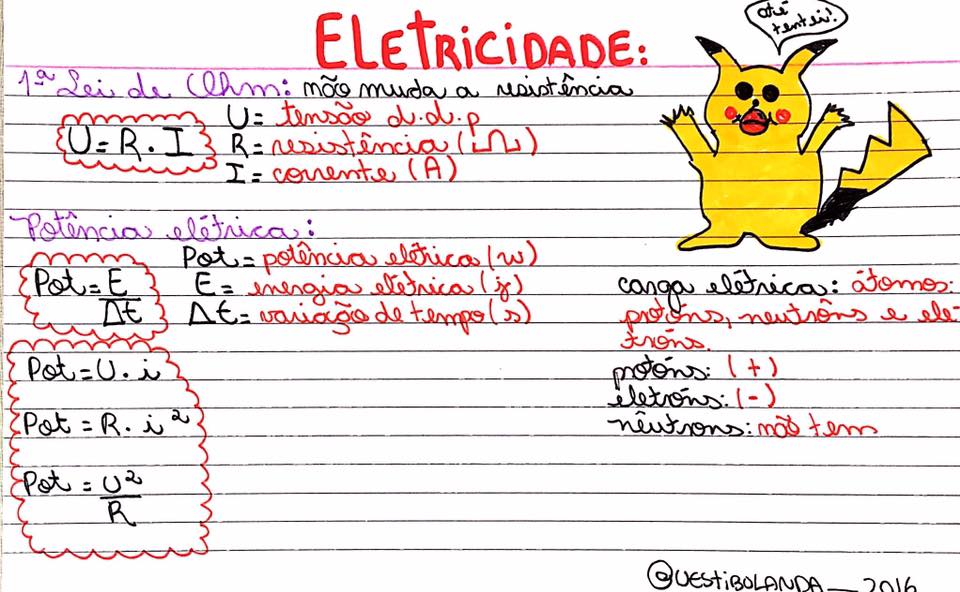 ELETRICIDADE:
até
tentei!
1ª Lei de Ohm: não muda a resistência
U = R . I
U = tensão d.d.p
R = resistência (Ω)
I = corrente (A)
Potência elétrica:
Pot = E
Δt
Pot = potência elétrica (w)
E = energia elétrica (j)
Δt = variação de tempo (s)
Pot = U . i
Pot = R . i²
Pot = U²
R
carga elétrica: átomos:
protóns, neutrôns e elé
tróns.
protóns: (+)
eletróns: (-)
nêutrons: não tem
@VESTIBOLANDA — 2016